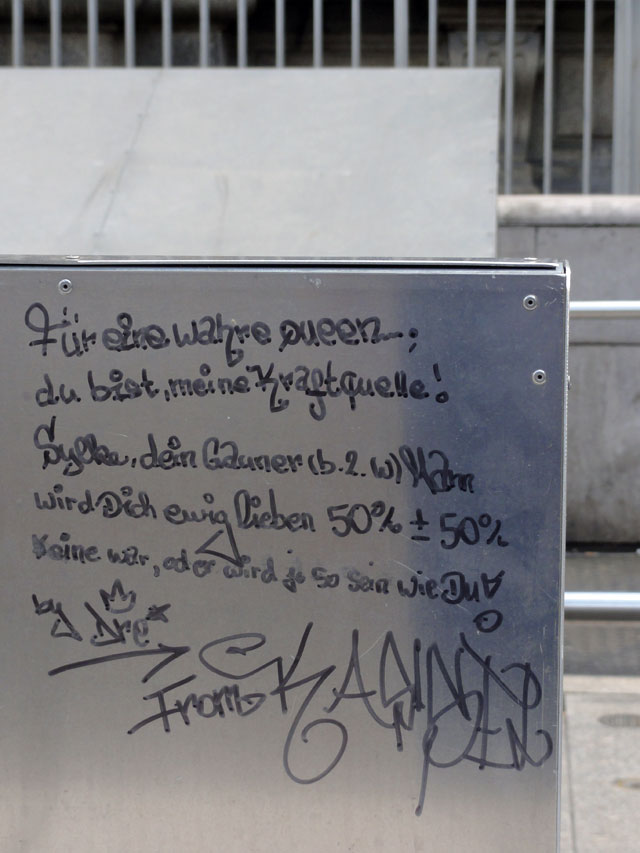 Für eine wahre queen...;
du bist, meine Kraftquelle!
Sylke, dein Gauner (b.z.w) Mann
wird Dich ewig lieben 50% ± 50%
Keine war, oder wird je so sein wie Du!
by Dre*
From